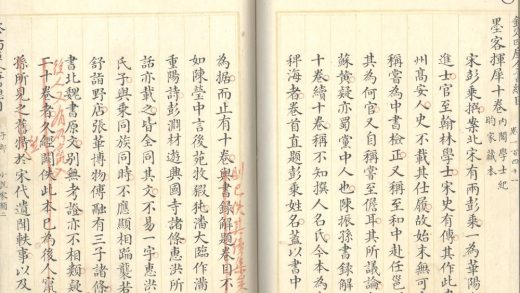 墨客揮犀十卷 內閣學士紀昀家藏本
宋彭乘撰案北宋有兩彭乘一為華陽
進士官至翰林學士宋史有傳其作此
州高安人史不載其仕履故始末無可
稱嘗為中書檢正又稱至和中赴任邕
其為何官又自稱嘗至儋耳其所議論
蘇黃疑亦蜀黨中人也陳振孫書錄解
十卷續十卷稱不知撰人名氏今本為
稗海者卷首直題彭乘姓名蓋以書中
為據而止有十卷與書錄解題卷目不
則已佚其續集矣
如陳瑩中言後苑牧豭㹠潘大臨作滿
重陽詩彭淵材遊興國寺諸條惠洪所
話亦載之皆全同其文不易一字惠洪
氏子與乘同族同時不應顯相蹈襲若
舒詣野店張華博物傅融有三子諸條
書北魏書原文別無考證亦不相類疑
二十卷者久經闕佚此本已為後人竄
孫所見之舊特於宋代遺聞軼事以及
子部 小說家類二